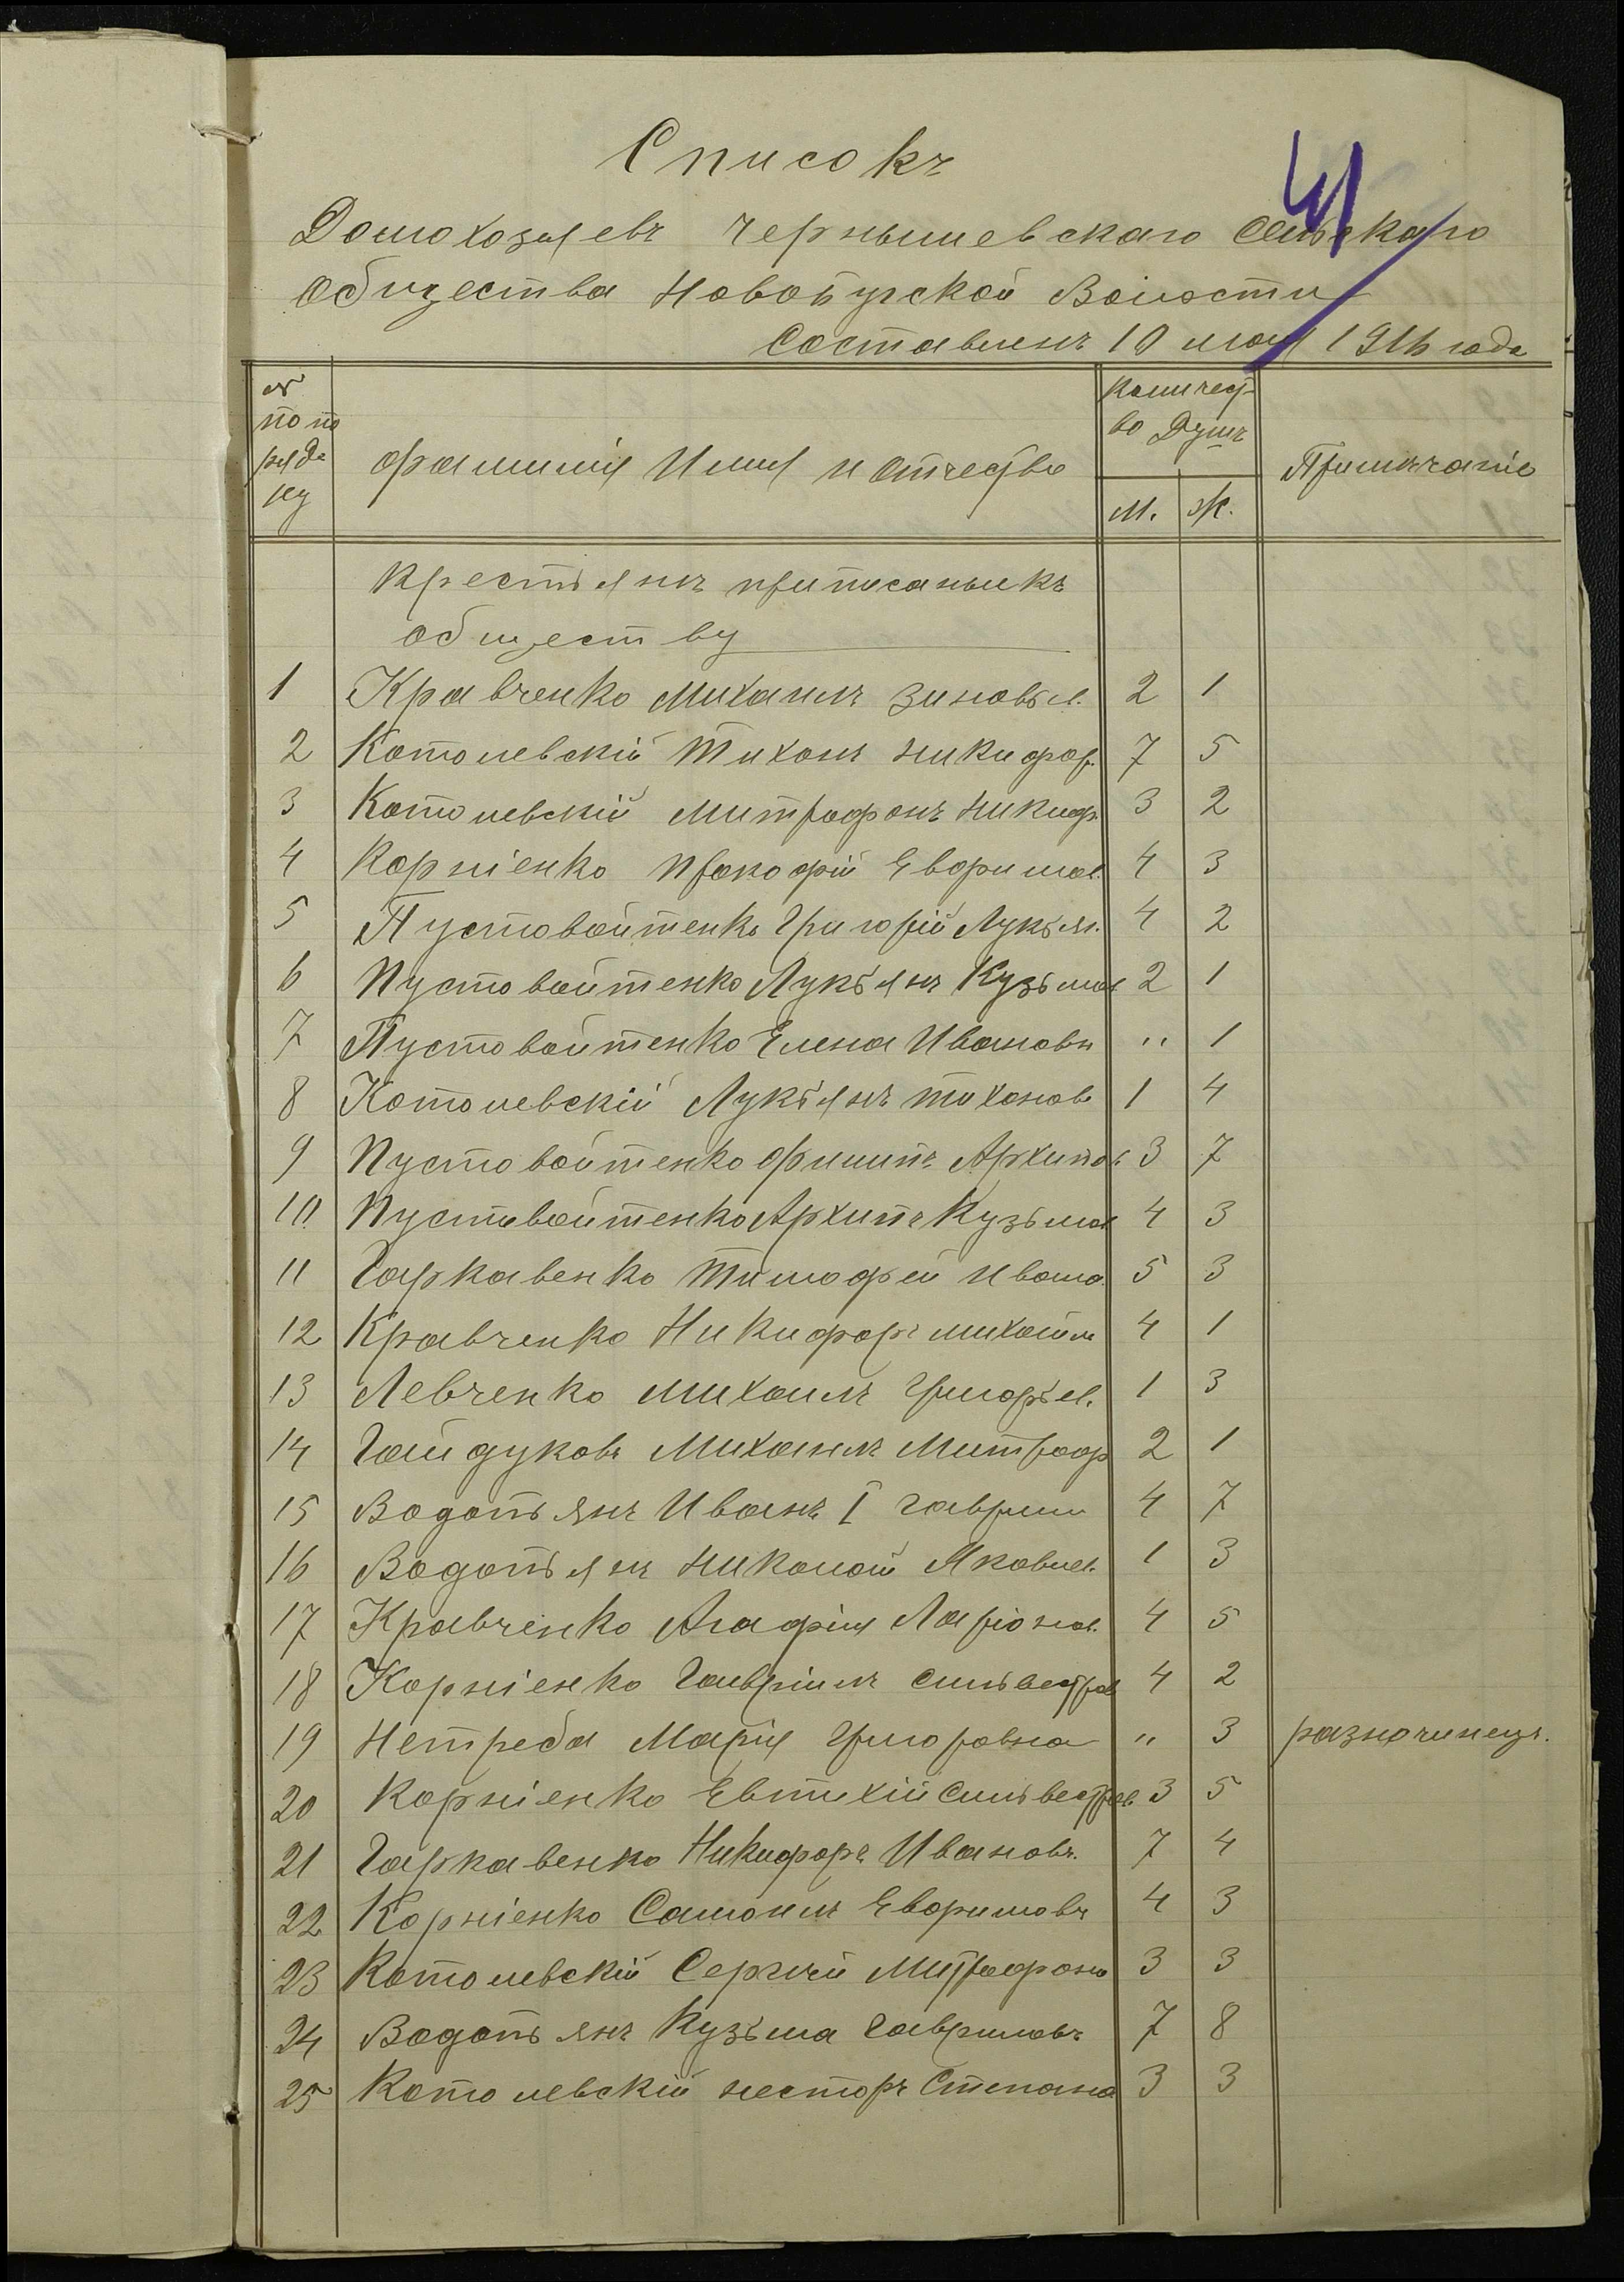 41
Списокъ
Домохозяевъ Чернышевскаго Сельскаго
Общества Новобугской Волости
Составленъ 10 мая 1916 года
№ по по рядку
Фамилія Имя и Отчество
Количест-во Душъ
М. Ж.
Примѣчаніе
Крестьянъ приписаныкъ
обществу
1 Кравченко Михаилъ Зиновьев. 2 1
2 Котолевскій Тихонъ Никифор. 7 5
3 Котолевскій Митрофонъ Никиф. 3 2
4 Корніенко Прокофій Евфимов. 4 3
5 Пустовойтенко Григорій Лукьян. 4 2
6 Пустовойтенко Лукьянъ Кузьмов 2 1
7 Пустовойтенко Елена Ивановн " 1
8 Котолевскій Лукьянъ Тихонов 1 4
9 Пустовойтенко Филипъ Архипов. 3 7
10 Пустовойтенко Архипъ Кузьмов 4 3
11 Гаркавенко Тимофей Ивано. 5 3
12 Кравченко Никифоръ Михайл 4 1
13 Левченко Михаилъ Григорьев. 1 3
14 Гайдуковъ Михаилъ Митроф 2 1
15 Водопьянъ Иванъ I Гаврил 4 7
16 Водопьянъ Николай Яковлев. 1 3
17 Кравченко Агафія Ларіонов. 4 5
18 Корніенко Гавріилъ Сильвестров 4 2
19 Нетреба Марія Григоровна " 3 разночинецъ.
20 Корніенко Евтихій Сильвестров. 3 5
21 Гаркавенко Никифоръ Ивановъ. 7 4
22 Корніенко Самоилъ Евфимовъ 4 3
23 Котолевскій Сергѣй Митрофоно 3 3
24 Водопьянъ Кузьма Гавриловъ 7 8
25 Котолевскій Несторъ Степано 3 3